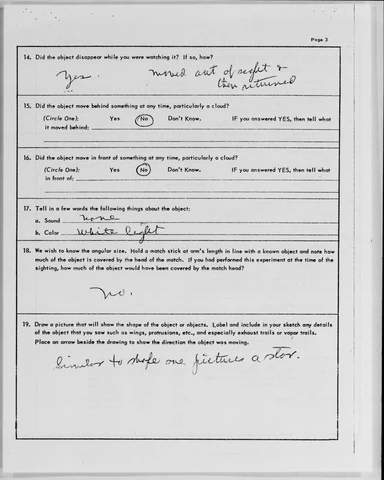 Page 3
14. Did the object disappear while you were watching it? If so, how?
Yes. moved out of sight &
then returned
15. Did the object move behind something at any time, particularly a cloud?
(Circle One): Yes No Don't Know. IF you answered YES, then tell what
it moved behind:
16. Did the object move in front of something at any time, particularly a cloud?
(Circle One): Yes No Don't Know. IF you answered YES, then tell what
in front of:
17. Tell in a few words the following things about the object:
a. Sound none
b. Color White light
18. We wish to know the angular size. Hold a match stick at arm's length in line with a known object and note how
much of the object is covered by the head of the match. If you had performed this experiment at the time of the
sighting, how much of the object would have been covered by the match head?
no.
19. Draw a picture that will show the shape of the object or objects. Label and include in your sketch any details
of the object that you saw such as wings, protrusions, etc., and especially exhaust trails or vapor trails.
Place an arrow beside the drawing to show the direction the object was moving.
Similar to shape one pictures a star.